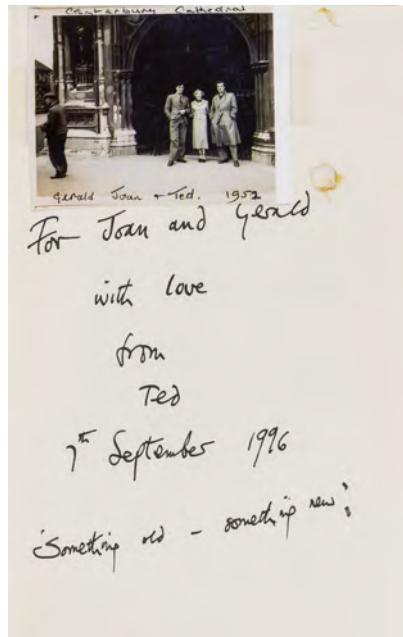 Canterbury Cathedral
Gerald Joan + Ted. 1952
For Joan and Gerald
with love
from
Ted
7th September 1996
'Something old – something new'